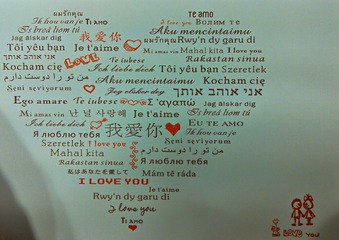 แผนรักคุณ Te amo แผนรักคุณ
Ik hou van je Ti amo I love you Волим те
Is breá liom tú Aku mencintaimu
Te iubesc 我愛你 Rwy'n dy garu di
LOVE Je t'aime Mi amas vin Mahal kita I love you
Tôi yêu bạn Ich liebe dich Rakastan sinua
Kocham cię Tôi yêu bạn Szeretlek
من تو را دوست دارم Aku mencintaimu Kocham cię
Seni seviyorum Jag älskar dig אני אוהב אותך
Ego amare Te iubesc Σ'αγαπώ Jag älskar dig
Mi amas vin 난 널 사랑해 Je t'aime Is breá liom tú
Ich liebe dich 我愛你 Eu te amo
Я люблю тебя Ik hou van je
Szeretlek I love you من تو را دوست دارم
Mahal kita Seni seviyorum
Rakastan sinua Я люблю тебя
私はあなたを愛して Mám tě ráda
I LOVE YOU Je t'aime
Rwy'n dy garu di
I love you
Ti amo
LOVE YOU